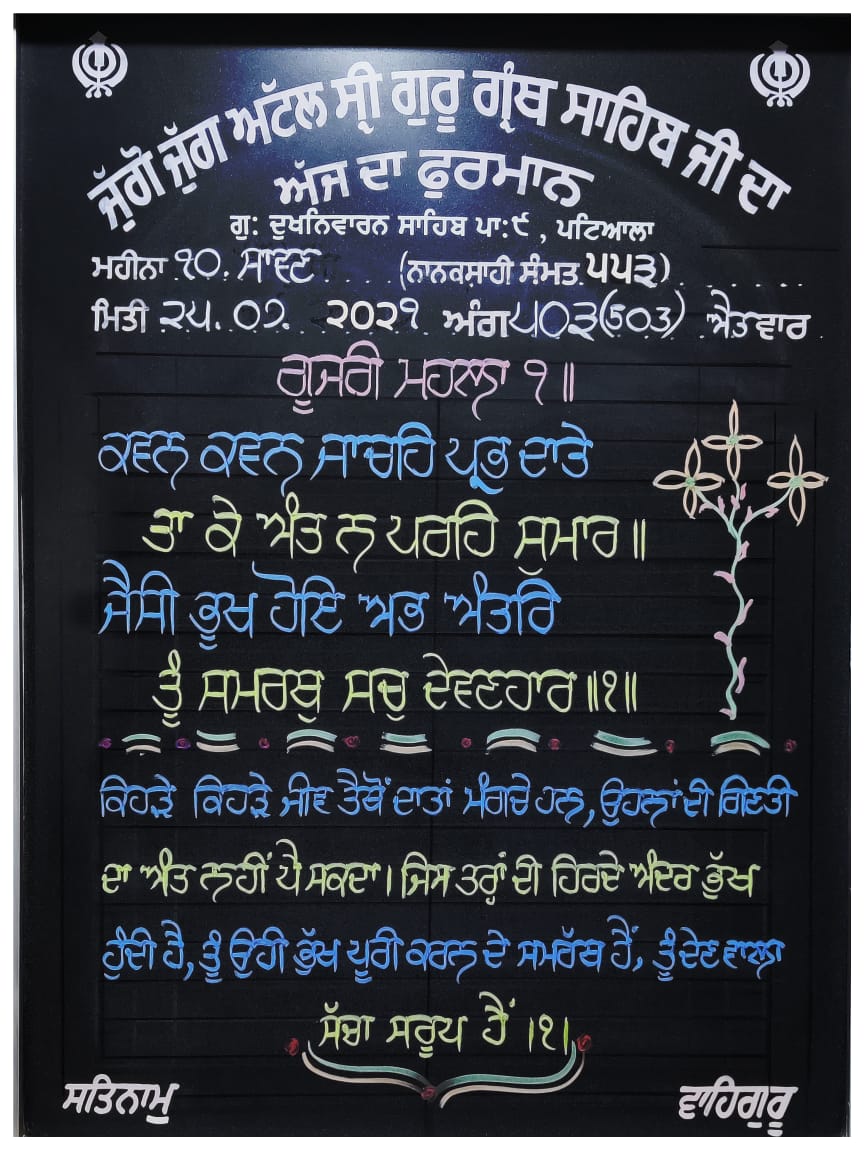 ਜੁੱਗੋ ਜੁੱਗ ਅੱਟਲ ਸ੍ਰੀ ਗੁਰੂ ਗ੍ਰੰਥ ਸਾਹਿਬ ਜੀ ਦਾ
ਅੱਜ ਦਾ ਫੁਰਮਾਨ
ਗੁ: ਦੁਖਨਿਵਾਰਨ ਸਾਹਿਬ ਪਾ:੯ , ਪਟਿਆਲਾ
ਮਹੀਨਾ ੧੦. ਸਾਵਣ (ਨਾਨਕਸਾਹੀ ਸੰਮਤ ੫੫੩)
ਮਿਤੀ ੨੫. ੦੭. ੨੦੨੧ ਅੰਗ ੫੦੩(503) ਐਤਵਾਰ
ਗੂਜਰੀ ਮਹਲਾ ੧ ॥
ਕਵਨ ਕਵਨ ਜਾਚਹਿ ਪ੍ਰਭ ਦਾਤੇ
ਤਾ ਕੇ ਅੰਤ ਨ ਪਰਹਿ ਸੁਮਾਰ ॥
ਜੈਸੀ ਭੂਖ ਹੋਇ ਅਭ ਅੰਤਰਿ
ਤੂੰ ਸਮਰਥੁ ਸਚੁ ਦੇਵਣਹਾਰ ॥੧॥
ਕਿਹੜੇ ਕਿਹੜੇ ਜੀਵ ਤੈਥੋਂ ਦਾਤਾਂ ਮੰਗਦੇ ਹਨ, ਉਹਨਾਂ ਦੀ ਗਿਣਤੀ
ਦਾ ਅੰਤ ਨਹੀਂ ਪੈ ਸਕਦਾ। ਜਿਸ ਤਰ੍ਹਾਂ ਦੀ ਹਿਰਦੇ ਅੰਦਰ ਭੁੱਖ
ਹੁੰਦੀ ਹੈ, ਤੂੰ ਉਹੀ ਭੁੱਖ ਪੂਰੀ ਕਰਨ ਦੇ ਸਮਰੱਥ ਹੈਂ, ਤੂੰ ਦੇਣ ਵਾਲਾ
ਸੱਚਾ ਸਰੂਪ ਹੈਂ ।੧।
ਸਤਿਨਾਮੁ
ਵਾਹਿਗੁਰੂ